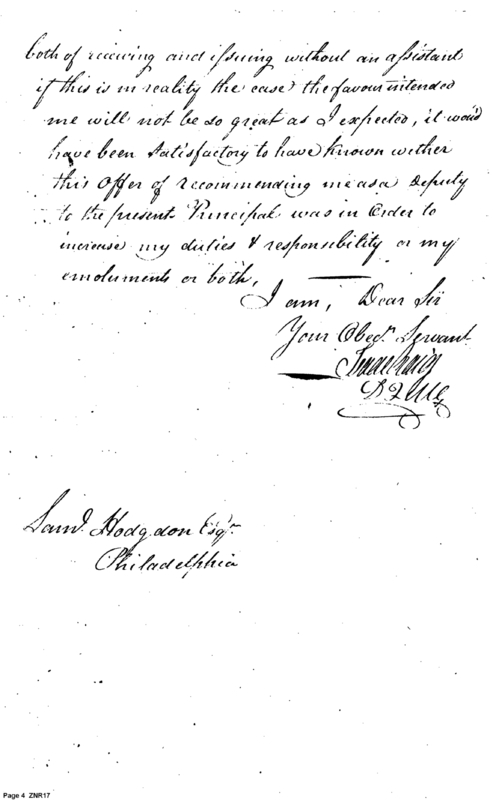 both of receiving and issuing without an assistant
if this is in reality the case the favour intended
me will not be so great as I expected, it would
have been satisfactory to have known wither
this Offer of recommending me as a Deputy
to the present Principal was in Order to
increase my duties & responsibility or my
emoluments or both,
I am, Dear Sir
Your Obedt. Servant
Isaac Craig
DQMG
Saml. Hodgdon Esqr.
Philadelphia
Page 4 ZNR17